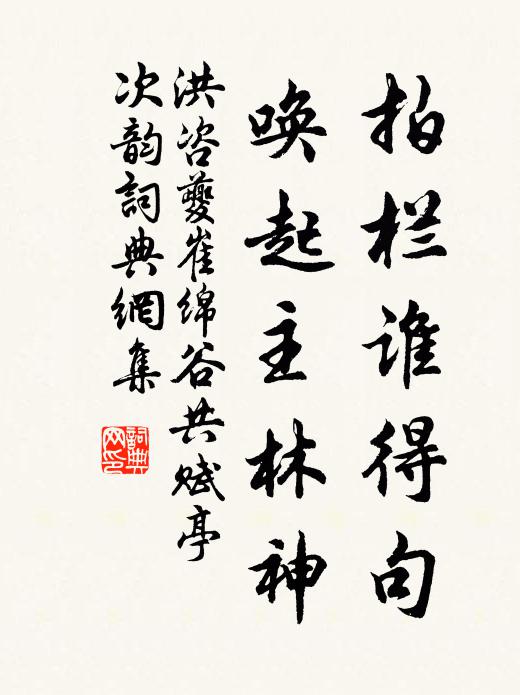 拍栏谁得句
唤起主林神
洪咨夔崔绵谷共赋亭
次韵詞典網集
詞典網印